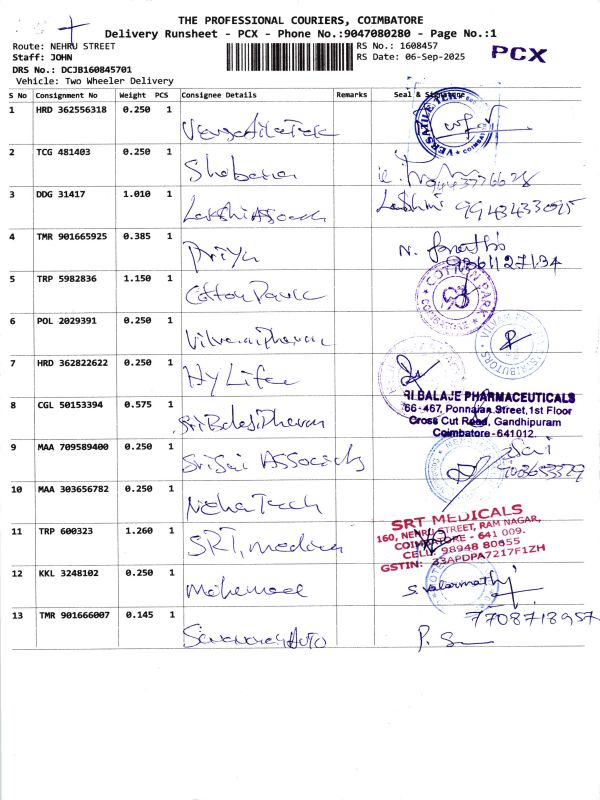 THE PROFESSIONAL COURIERS, COIMBATORE
Delivery Runsheet - PCX - Phone No.:9047080280 - Page No.:1
Route: NEHRU STREET
Staff: JOHN
DRS No.: DCJB160845701
Vehicle: Two Wheeler Delivery
RS No.: 1608457
RS Date: 06-Sep-2025
PCX
S No Consignment No Weight PCS Consignee Details Remarks Seal & Signature
1 HRD 362556318 0.250 1
VERSATILE COIMBATORE
2 TCG 481403 0.250 1 Shabana
3 DDG 31417 1.010 1 Lakshi Associ
Lakshmi 9943433095
4 TMR 901665925 0.385 1 Priya
N.
9361127134
5 TRP 5982836 1.150 1 Cotton Park
COTTON PARK COIMBATORE
6 POL 2029391 0.250 1
DISTRIBUTORS
7 HRD 362822622 0.250 1 Hy Life
8 CGL 50153394 0.575 1 Sri Balaji Pharm
RI BALAJE PHARMACEUTICALS
66-467, Ponnaian Street, 1st Floor
Cross Cut Road, Gandhipuram
Coimbatore - 641012.
9 MAA 709589400 0.250 1 Sri Sai Associats
Sai
10 MAA 303656782 0.250 1 Neha Tech
11 TRP 600323 1.260 1 SRT, medica
SRT MEDICALS
160, NEHRU STREET, RAM NAGAR,
COIMBATORE - 641 009.
CELL: 98948 80655
GSTIN: 33APDPA7217F1ZH
12 KKL 3248102 0.250 1
S. Valarmathi
7708718957
13 TMR 901666007 0.145 1 Auto
P. S